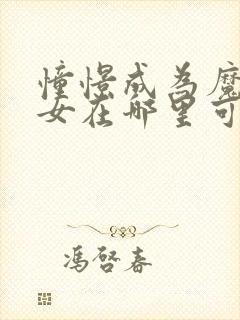 憧憬成为魔
女在哪里可
冯启春